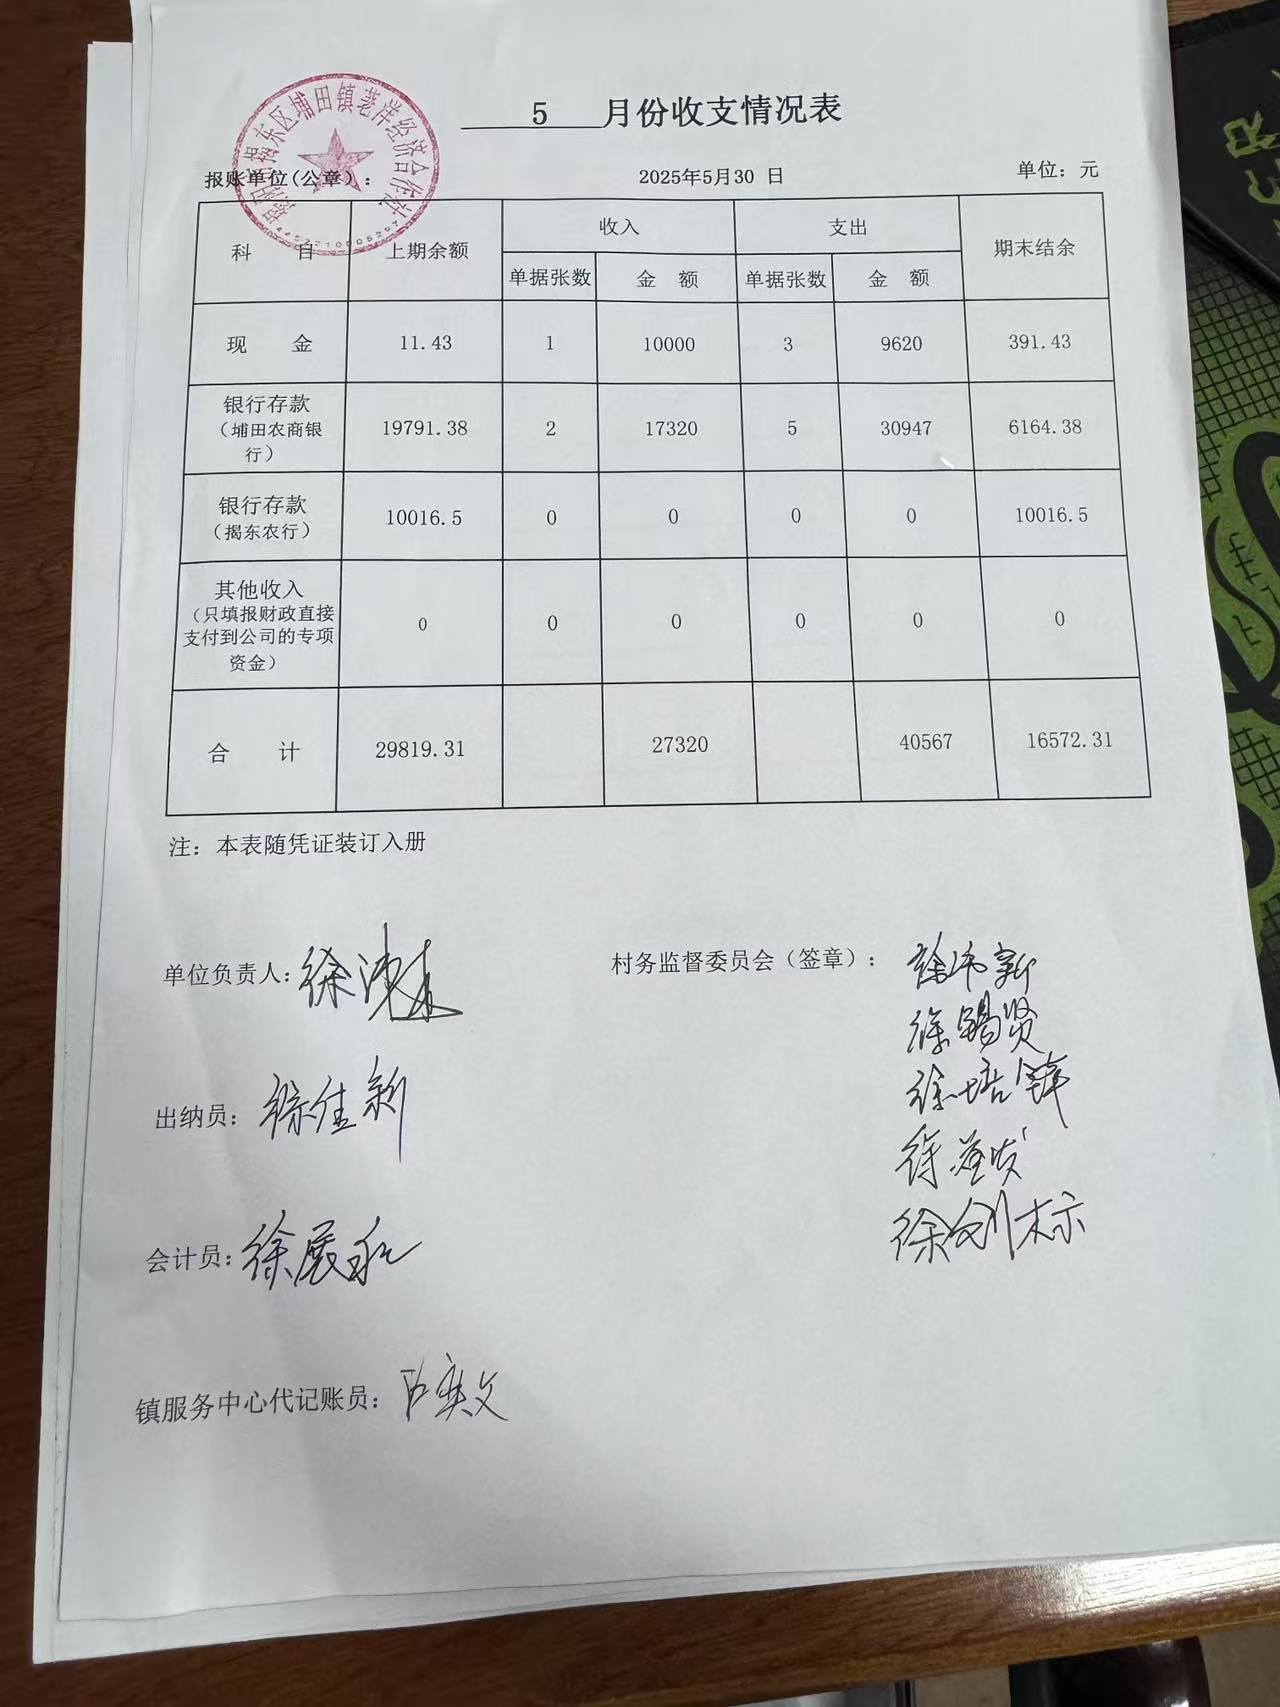 5 月份收支情况表
揭阳市揭东区埔田镇老洋经济合作社
报账单位(公章)： 2025年5月30 日 单位：元
科 目 上期余额 收入 支出 期末结余
单据张数 金 额 单据张数 金 额
现 金 11.43 1 10000 3 9620 391.43
银行存款
（埔田农商银
行） 19791.38 2 17320 5 30947 6164.38
银行存款
（揭东农行） 10016.5 0 0 0 0 10016.5
其他收入
（只填报财政直接
支付到公司的专项
资金） 0 0 0 0 0 0
合 计 29819.31 27320 40567 16572.31
注：本表随凭证装订入册
单位负责人： 村务监督委员会（签章）：
徐锡贤
徐培锋
出纳员：徐佳新
徐剑标
会计员：徐展
镇服务中心代记账员：